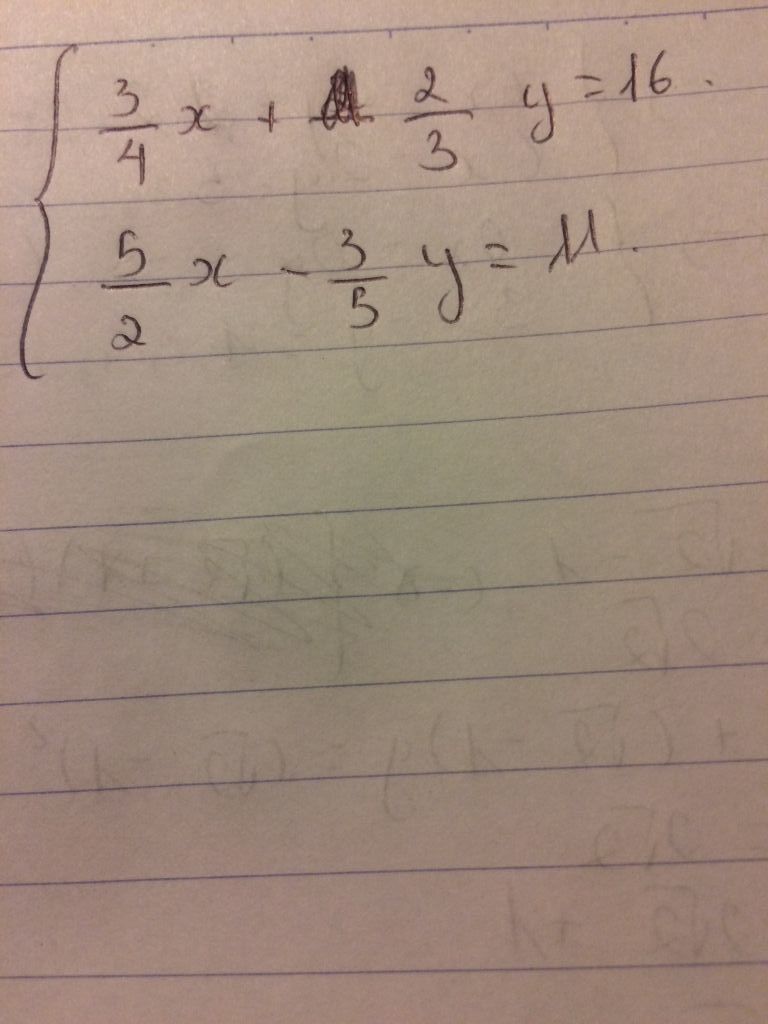 3/4 x + 2/3 y = 16.
5/2 x - 3/5 y = 11.